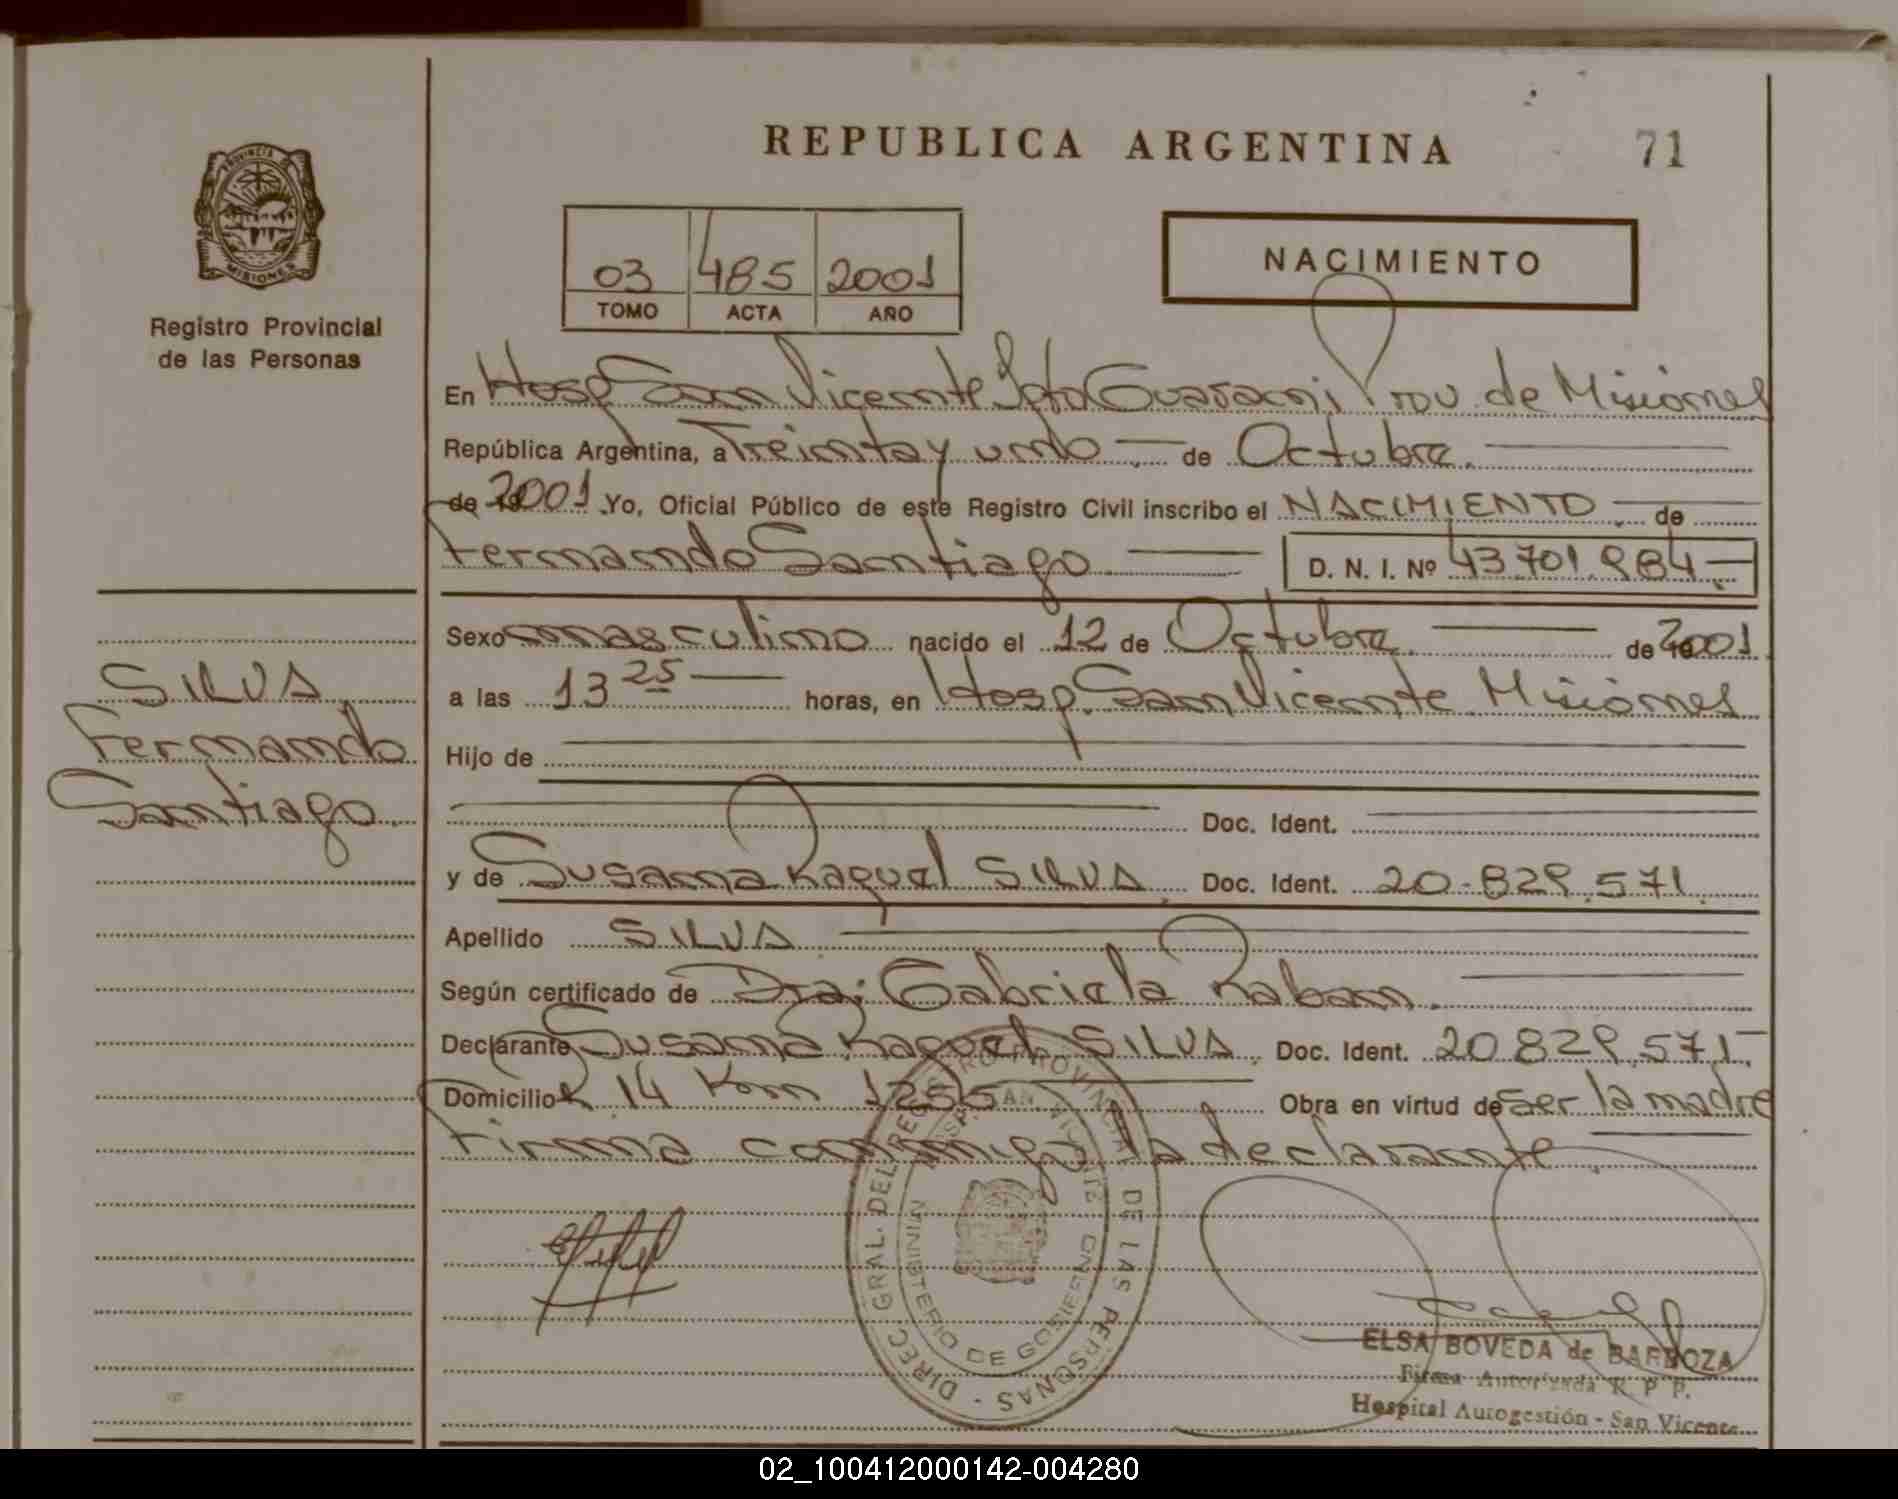 REPUBLICA ARGENTINA
71
PROVINCIA DE
MISIONES
Registro Provincial
de las Personas
03 485 2001
TOMO ACTA AÑO
NACIMIENTO
En Hosp San Vicente Dpto Guarani Prov de Misiones
República Argentina, a Treinta y uno de Octubre.
de 2001 Yo, Oficial Público de este Registro Civil inscribo el NACIMIENTO de
Fernando Santiago D. N. I. Nº 43.701.984.-
Sexo masculino nacido el 12 de Octubre de 2001
a las 13 25 horas, en Hosp. San Vicente Misiones
Hijo de
Doc. Ident.
y de Susana Raquel SILVA Doc. Ident. 20.829.571
Apellido SILVA
Según certificado de Dra; Gabriela Raban.
Declarante Susana Raquel SILVA. Doc. Ident. 20.829.571-
Domicilio R 14 Km 1255 Obra en virtud de ser la madre
Firma conmigo la declarante.
SILVA
Fernando
Santiago.
DIREC. GRAL. DEL REGISTRO PROVINCIAL DE LAS PERSONAS -
MINISTERIO DE GOBIERNO
SAN VICENTE
ELSA BOVEDA de BARBOZA
Firma Autorizada R. P. P.
Hospital Autogestión - San Vicente
02_100412000142-004280